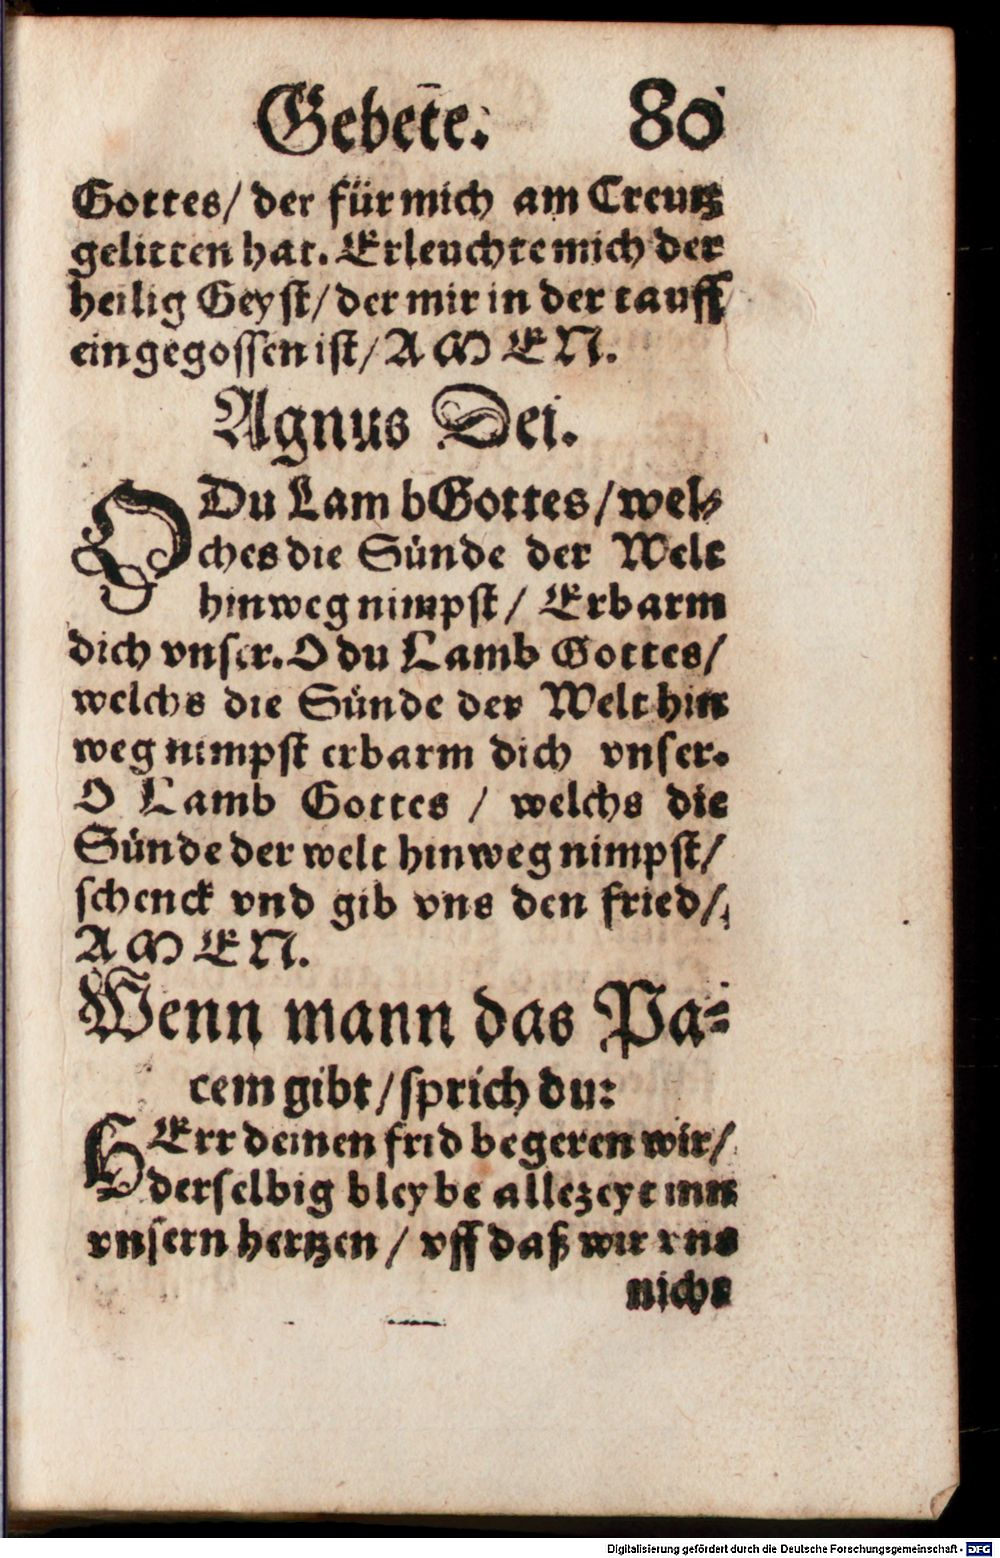 Gebete. 80
Gottes/ der für mich am Creutz
gelitten hat. Erleuchte mich der
heilig Geyst/ der mir in der tauff
eingegossen ist/ AMEN.
Agnus Dei.
O Du Lamb Gottes/ wel-
ches die Sünde der Welt
hinweg nimpst/ Erbarm
dich vnser. O du Lamb Gottes/
welchs die Sünde der Welt hin
weg nimpst erbarm dich vnser.
O Lamb Gottes / welchs die
Sünde der welt hinweg nimpst/
schenck vnd gib vns den fried/
AMEN.
Wenn mann das Pa-
cem gibt/ sprich du:
HErr deinen frid begeren wir/
derselbig bleybe allezeyt inn
vnsern hertzen / vff daß wir vns
nicht
Digitalisierung gefördert durch die Deutsche Forschungsgemeinschaft - DFG